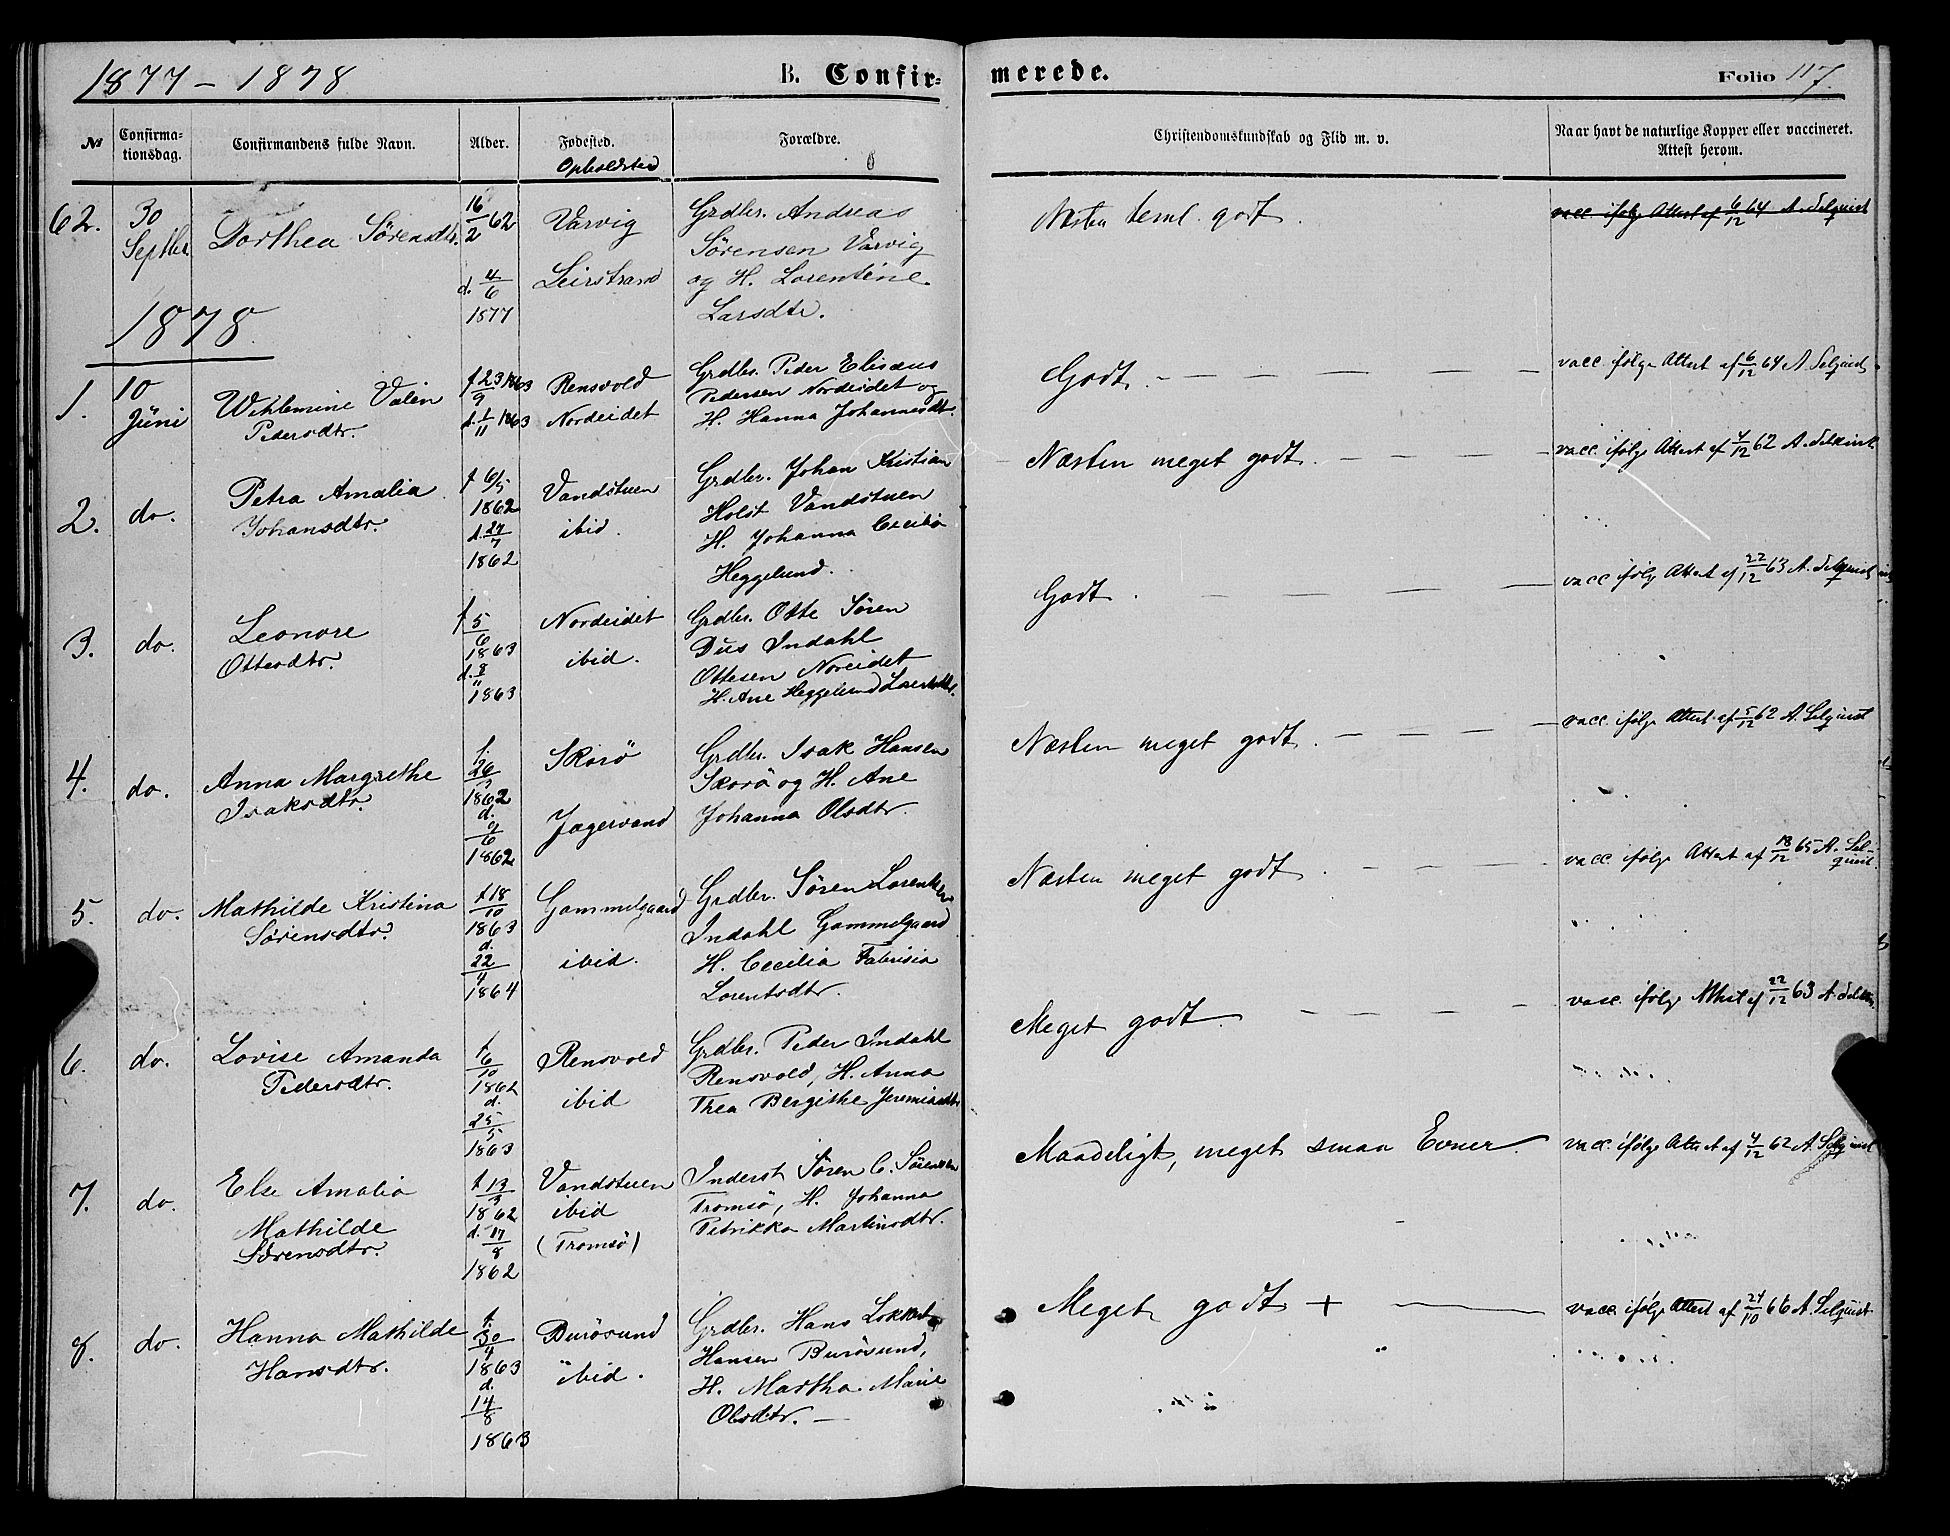 1877 - 1878 B. Confir- merede. Folio 117.
№ Confirma-tionsdag. Confirmandens fulde Navn. Alder. Fødested. Forældre. Christendomskundskab og Flid m. v. Naar havt de naturlige Kopper eller vaccineret. Attest herom.
Opholdsted
62. 30 Septbr. Dorthea Sørensdtr. 16/2 62 Varvig Grdbr. Andreas Næsten teml. godt. vacc. ifølge Attest af 6/12 64 A. Selquist
Sørensen Varvig
d. 4/6 1877 Leirstrand og H. Lorentine
Larsdtr.
1878.
1. 10 Juni Wihlemine Valen f 23/9 1863 Rensvold Grdbr. Peder Elisæus Godt. vacc. ifølge Attest af 6/12 64 A. Selquist
Pedersdtr. d. 1/11 1863 Nordeidet Pedersen Nordeidet og
H. Hanna Johannesdtr.
2. do. Petra Amalia f 6/5 1862 Vandstuen Grdbr. Johan Kristian Næsten meget godt. vacc. ifølge Attest af 4/12 62 A. Selkvist
Johansdtr. d. 27/7 1862 ibid. Holst Vandstuen
H. Johanna Cecilia
Heggelund.
3. do. Leonore f 5/6 1863 Nordeidet Grdbr. Otte Søren Godt. vacc ifølg Attest af 22/12 63 A. Selquist
Ottesdtr. d. 8/11 1863 ibid. Dus Indahl
Ottesen Noreidet
H. Ane Heggelund
4. do. Anna Margrethe f. 26 1862 Skorö Grdbr. Isak Hansen Næsten meget godt. vacc. ifølge Attest af 5/12 62 A. Selquist
Isaksdtr. d. 9/6 1862 Jægervand Skorö og H. Ane
Johanna Olsdtr.
5. do. Mathilde Kristina f 18/10 1863 Gammelgaard Grdbr. Sören Næsten meget godt. vacc ifølge Attest af 18/12 65 A. Selquist
Sørensdtr. d. 22/4 1864 ibid. Indahl Gammelgaard
H. Cecilia Fabrisia
Lorentsdtr.
6. do. Lovise Amanda f 6/10 1862 Rensvold Grdbr. Peder Indahl Meget godt. vacc. ifølge Attest af 22/12 63 A. Selkvist
Pedersdtr. d. 25/5 1863 ibid Rensvold, H. Anna
Thea Bergithe Jeremiasdtr.
7. do. Else Amalia f 13/3 1862 Vandstuen Inderst Søren C. Sørensen Maadeligt, meget smaa Evner. vacc. ifølge Attest af 4/12 62 A. Selquist
Mathilde d. 17/8 1862 ibid Tromsö, H. Johanna
Sørensdtr. (Tromsö) Petrikka Martinsdtr.
8. do. Hanna Mathilde f. 30/4 1863 Burösund Grdbr. Hans Meget godt + vacc. ifølge Attest af 24/10 66 A. Selquist
Hansdtr. d. 14/8 1863 ibid. Hansen Burösund,
H. Martha Marie
Olsdtr.